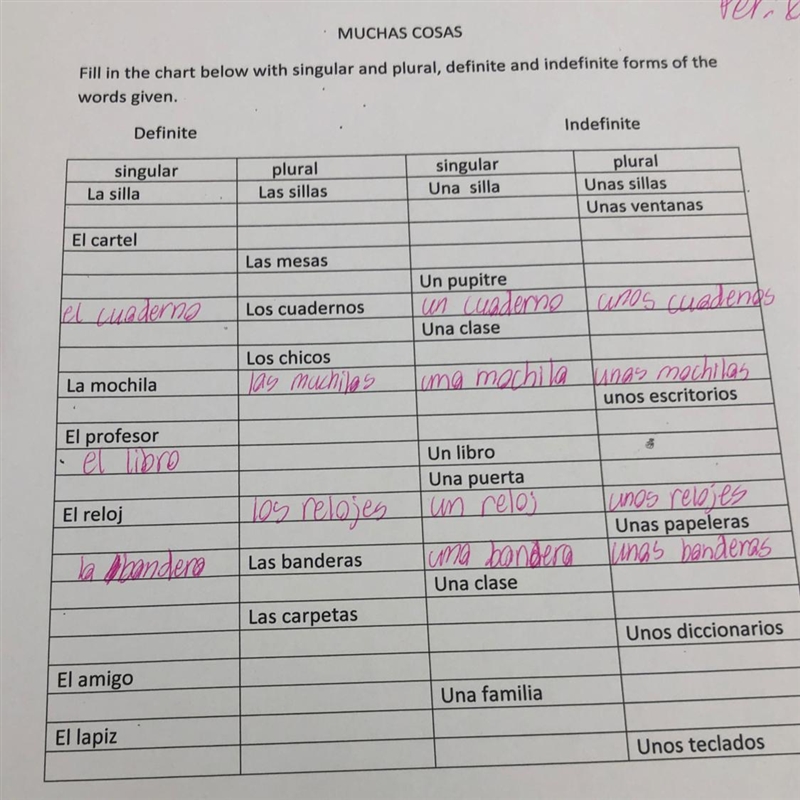 Per.
MUCHAS COSAS
Fill in the chart below with singular and plural, definite and indefinite forms of the
words given.
Definite Indefinite
singular plural singular plural
La silla Las sillas Una silla Unas sillas
Unas ventanas
El cartel
Las mesas
Un pupitre
el cuaderno Los cuadernos un cuaderno unos cuadenos
Una clase
Los chicos
La mochila las muchilas una mochila unas mochilas
unos escritorios
El profesor
el libro Un libro
Una puerta
El reloj los relojes un reloj unos relojes
Unas papeleras
la bandera Las banderas una bandera unas banderas
Una clase
Las carpetas
Unos diccionarios
El amigo
Una familia
El lapiz
Unos teclados